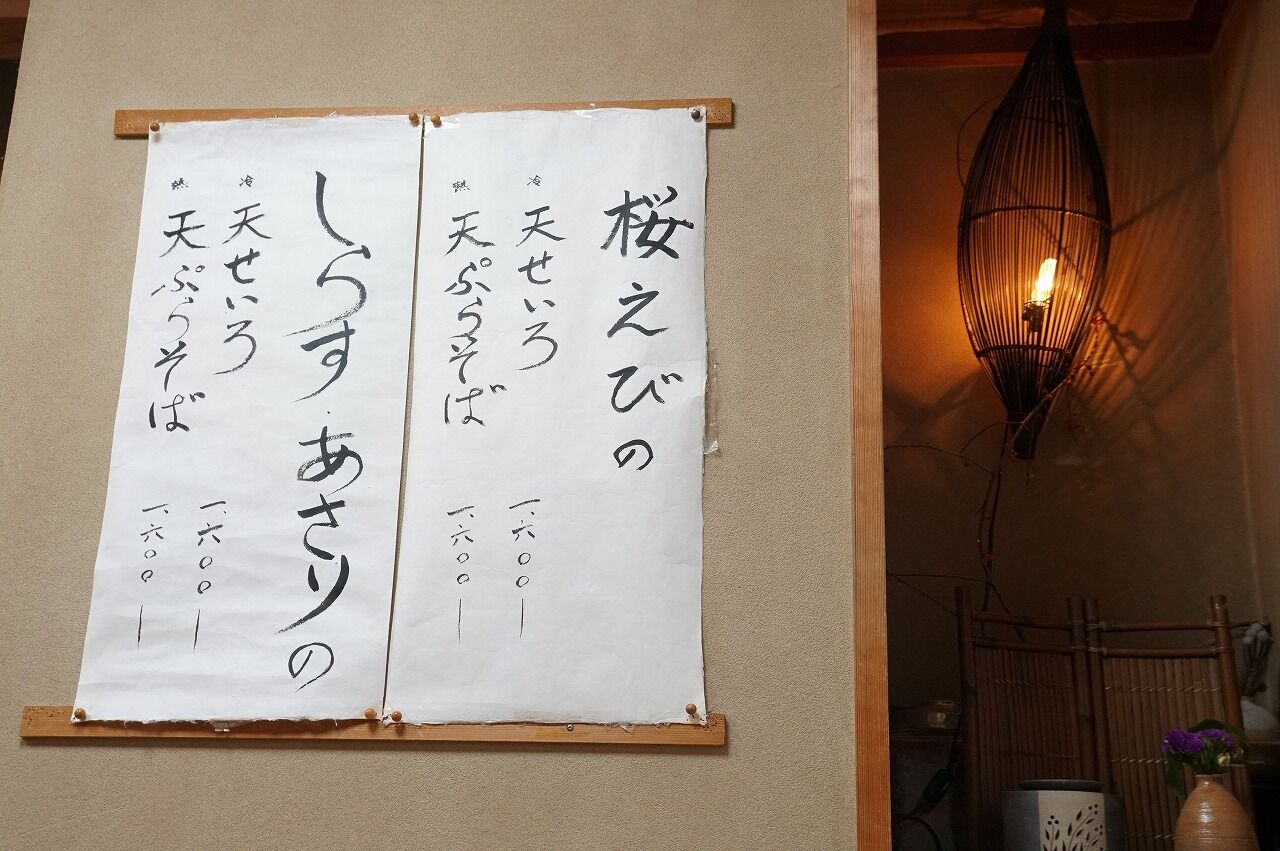 桜えびの
冷 天せいろ 一、六〇〇ー
熱 天ぷらそば 一、六〇〇ー
しらす・あさりの
冷 天せいろ 一、六〇〇ー
熱 天ぷらそば 一、六〇〇ー